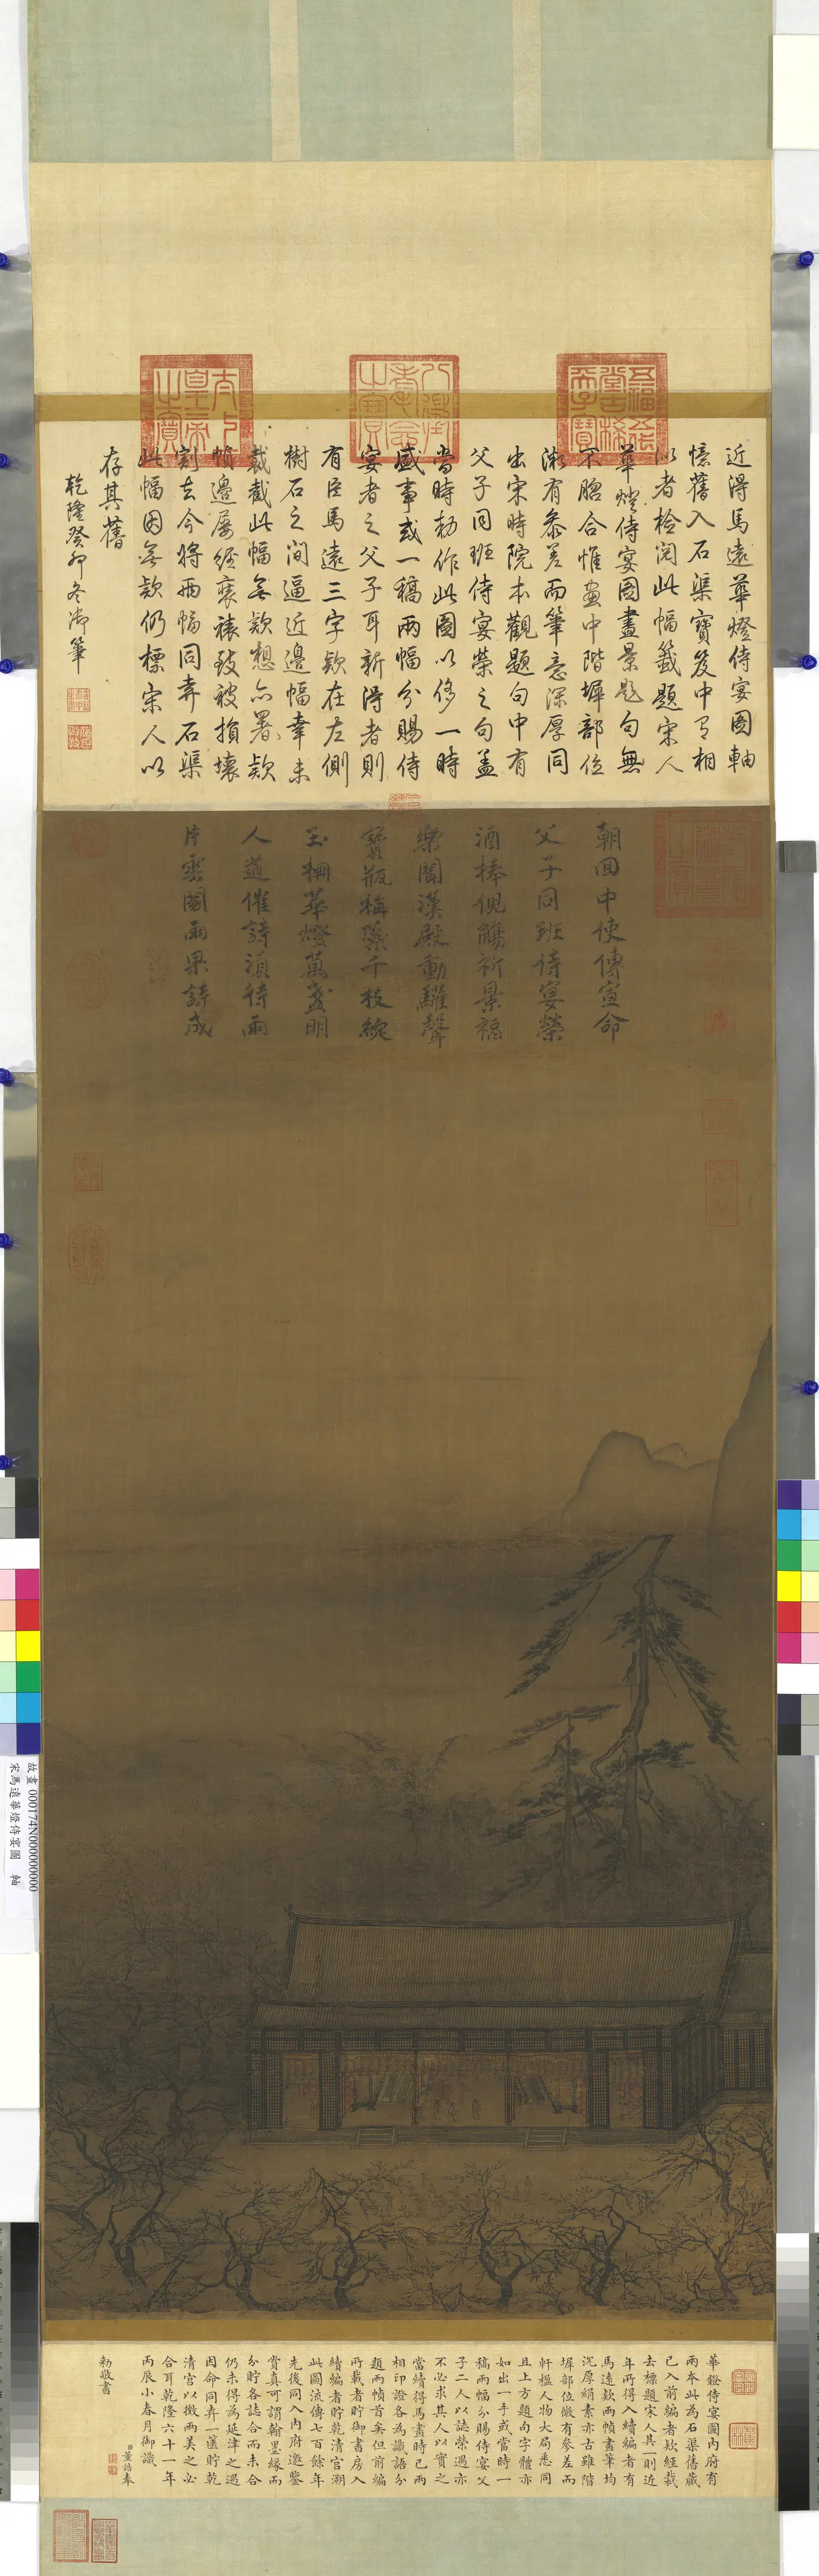 近得馬遠華燈侍宴圖軸
憶舊入石渠寶笈中有相
似者檢閱此幅籤題宋人
華燈侍宴圖畫景題句無
不脗合惟畫中階墀部位
微有參差而筆意深厚同
出宋時院本觀題句中有
父子同班侍宴榮之句蓋
當時勑作此圖以侈一時
盛事或一稿兩幅分賜侍
宴者之父子耳新得者則
有臣馬遠三字款在左側
樹石之間逼近邊幅幸未
裁截此幅無款想亦署款
幀邊屢經裹裱致被損壞
割去今將兩幅同弆石渠
此幅因無款仍標宋人以
存其舊
乾隆癸卯冬御筆
五福五代堂古稀天子寶
八徵耄念之寶
太上皇帝之寶
朝回中使傳宣命
父子同班侍宴榮
酒捧倪觴祈景福
樂聞漢殿動驩聲
寶瓶梅蘂千枝綻
玉柵華燈萬盞明
人道催詩須待雨
片雲閣雨果詩成
華鐙侍宴圖內府有
兩本此為石渠舊藏
已入前編者欵經裁
去標題宋人其一則近
年所得入續編者有
馬遠欵兩幀畫筆均
沉厚絹素亦古雖階
墀部位微有參差而
軒楹人物大局悉同
且上方題句字體亦
如出一手或當時一
稿兩幅分賜侍宴父
子二人以誌榮遇亦
不必求其人以實之
當續得馬畫時已兩
相印證各為識語分
題兩幀首矣但前編
所載者貯御書房入
續編者貯乾清宮溯
此圖流傳七百餘年
先後同入內府邀鑒
賞真可謂翰墨緣而
分貯各誌合而未合
仍未得為延津之遇
因命同弆一篋貯乾
清宮以徵兩美之必
合耳乾隆六十一年
丙辰小春月御識
臣董誥奉
勅敬書
故畫 000174N000000000
宋馬遠華燈侍宴圖 軸